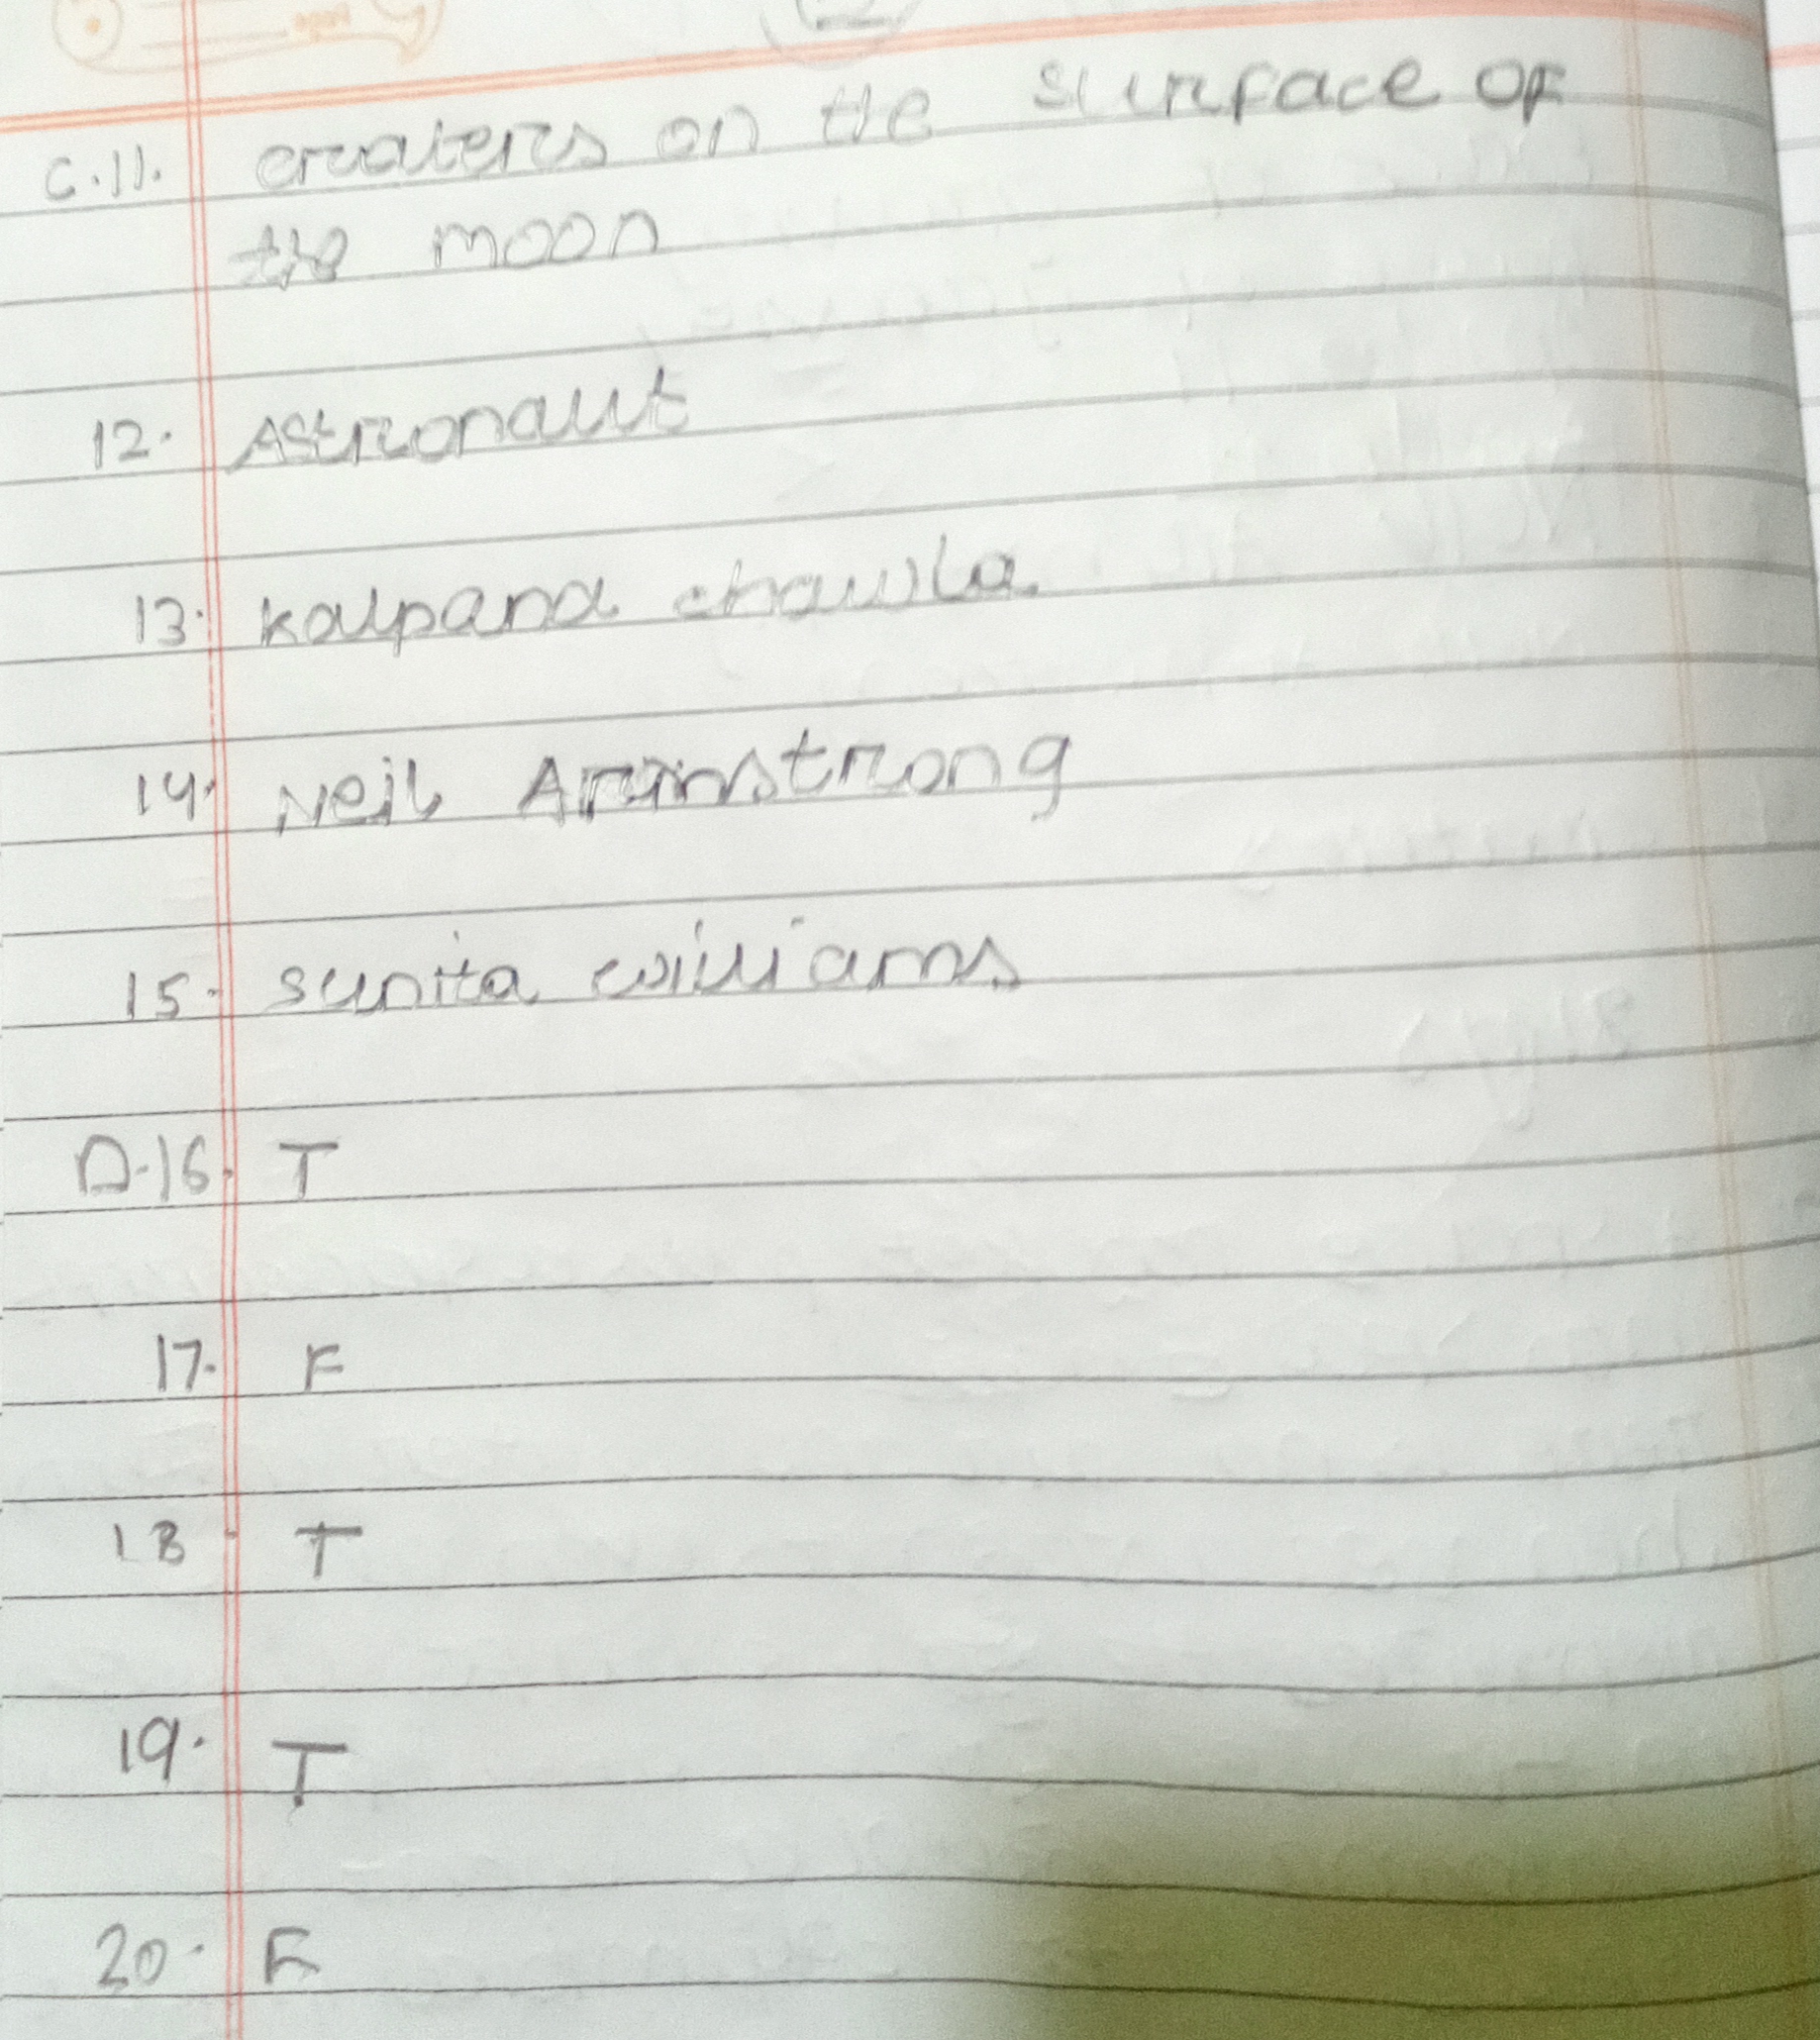 C.11. craters on the surface of
the moon
12. Astronaut
13. kalpana chawla
14. Neil Armstrong
15. sunita williams
D.16. T
17. F
18. T
19. T
20. F